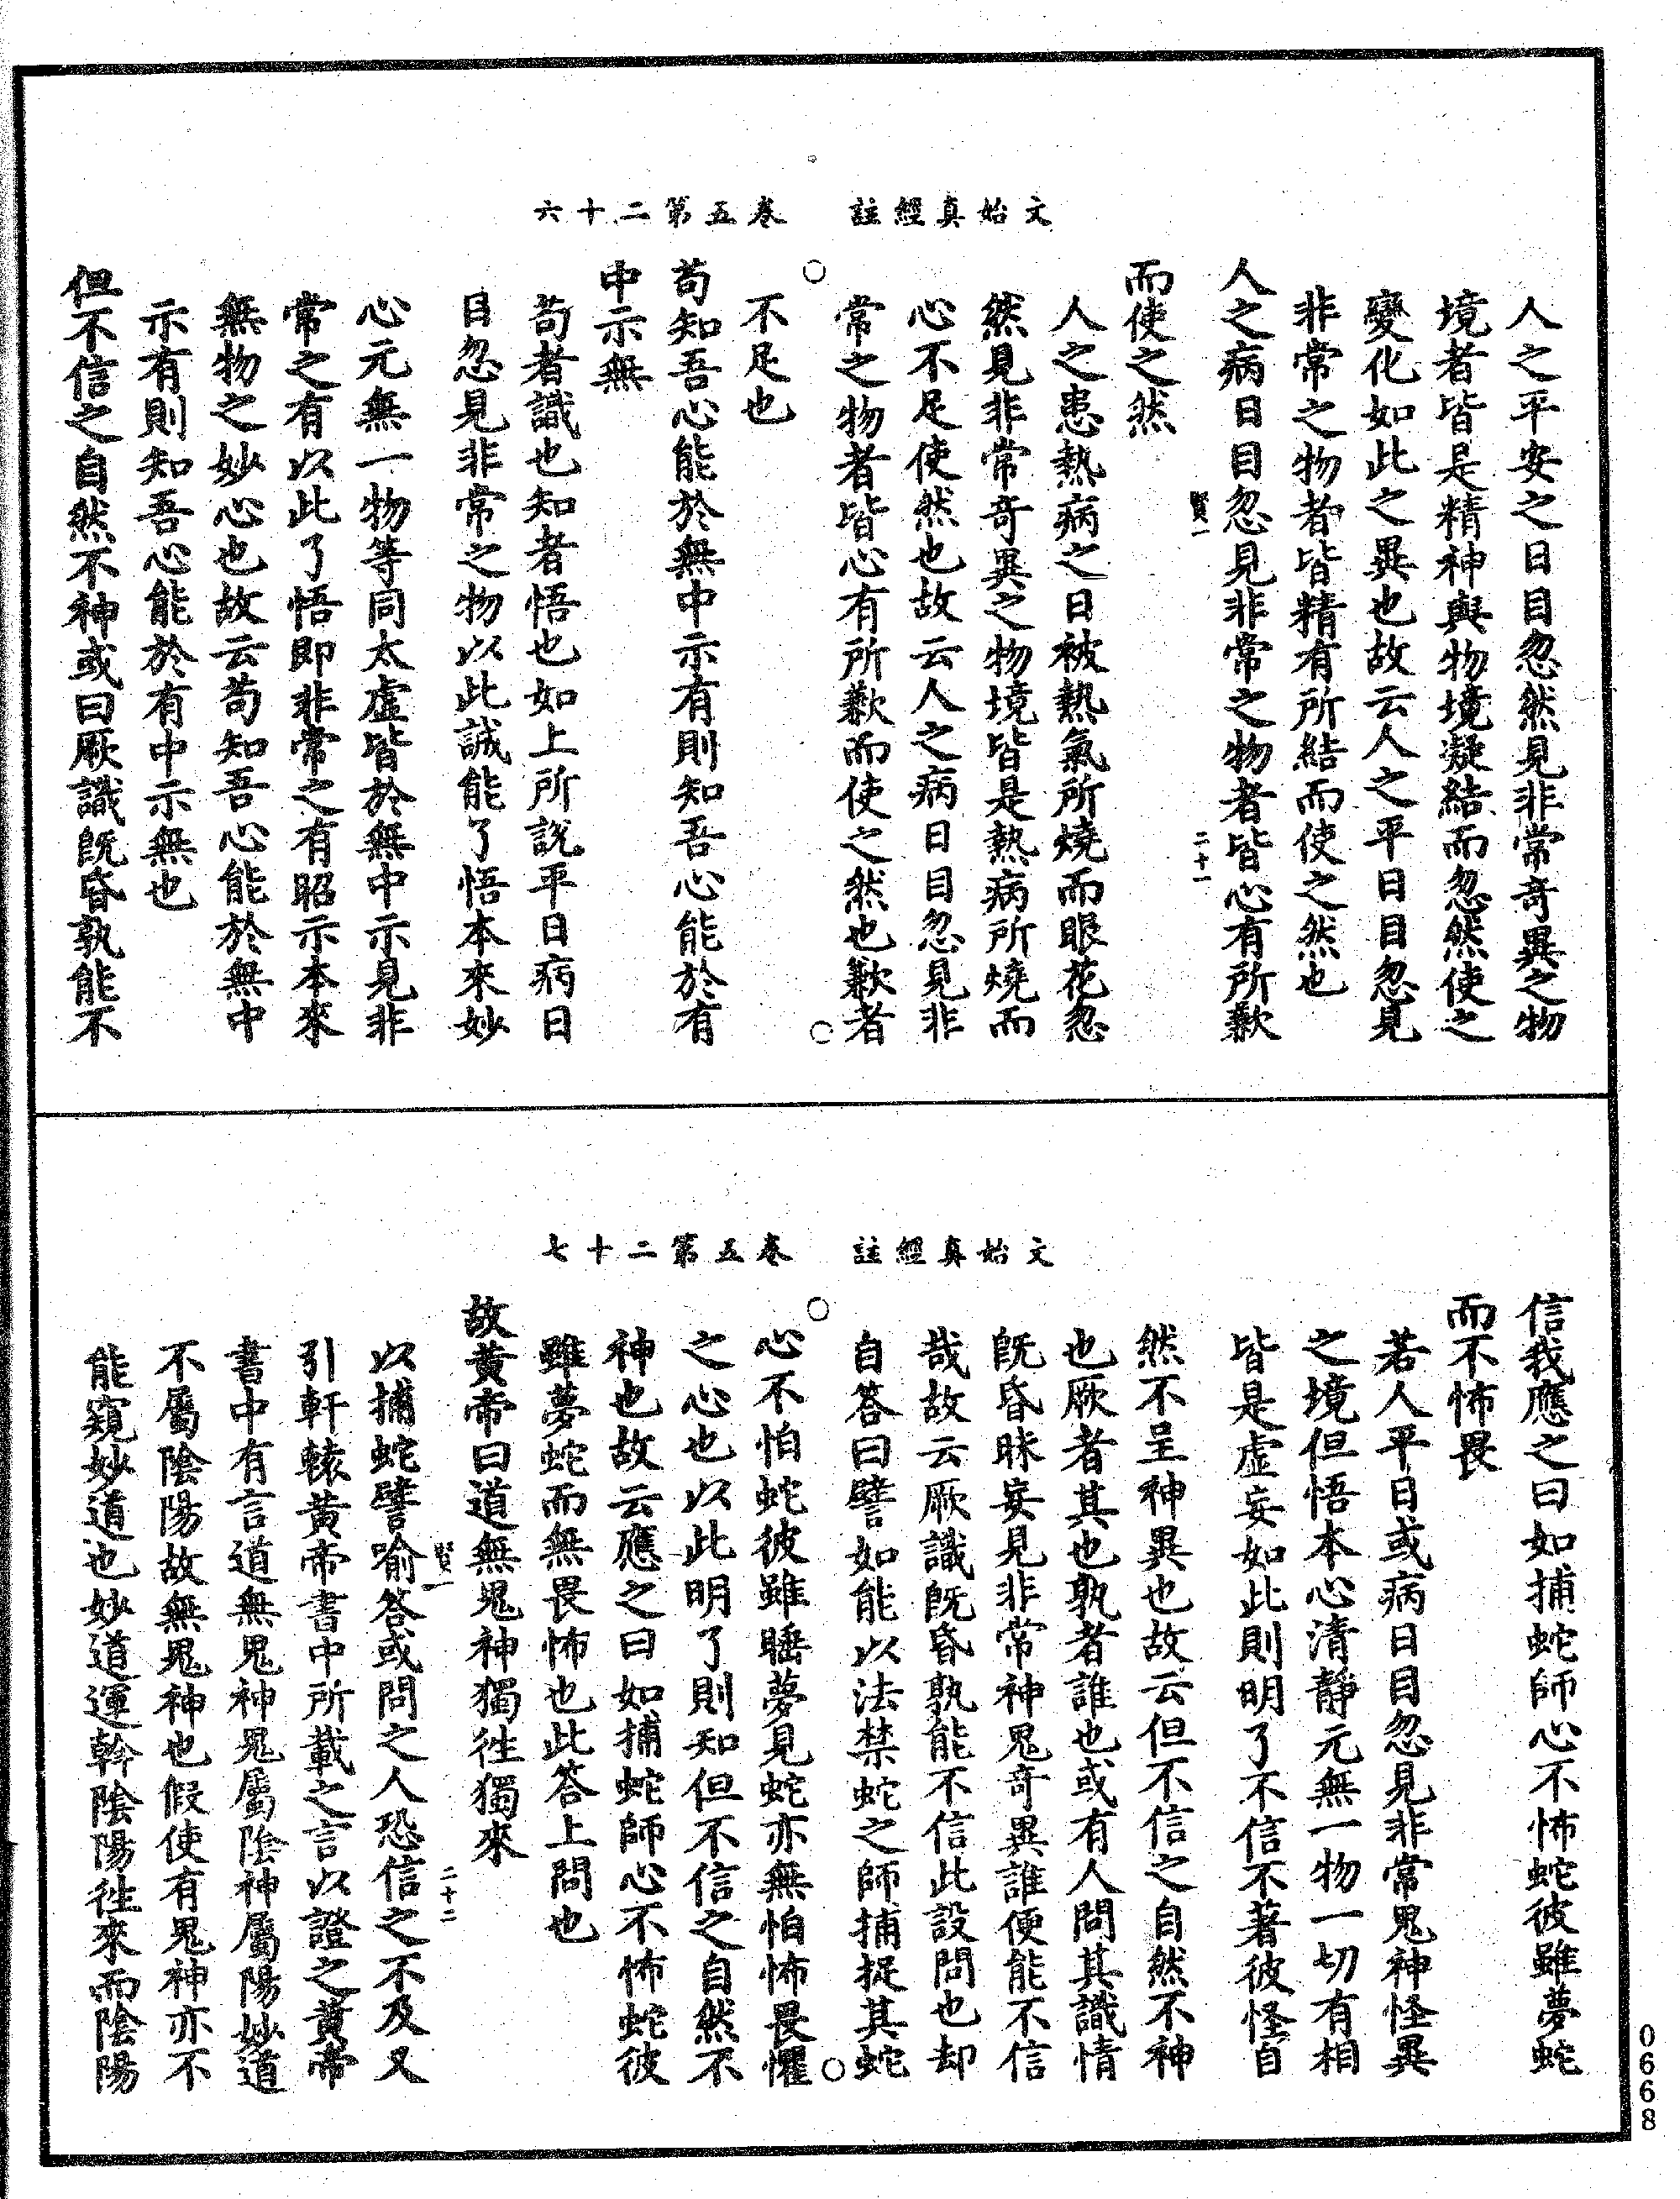 文始真經註　卷五第二十六
人之平安之日目忽然見非常奇異之物
境者皆是精神與物境凝結而忽然使之
變化如此之異也故云人之平日目忽見
非常之物者皆精有所結而使之然也
人之病日目忽見非常之物者皆心有所歉
賢一　二十一
而使之然
人之患熱病之日被熱氣所燒而眼花忽
然見非常奇異之物境皆是熱病所燒而
心不足使然也故云人之病日目忽見非
常之物者皆心有所歉而使之然也歉者
不足也
苟知吾心能於無中示有則知吾心能於有
中示無
苟者識也知者悟也如上所說平日病日
目忽見非常之物以此誠能了悟本來妙
心元無一物等同太虛皆於無中示見非
常之有以此了悟即非常之有昭示本來
無物之妙心也故云苟知吾心能於無中
示有則知吾心能於有中示無也
但不信之自然不神或曰厥識旣昏孰能不
文始真經註　卷五第二十七
信我應之曰如捕蛇師心不怖蛇彼雖夢蛇
而不怖畏
若人平日或病日目忽見非常鬼神怪異
之境但悟本心清靜元無一物一切有相
皆是虛妄如此則明了不信不著彼怪自
然不呈神異也故云但不信之自然不神
也厥者其也孰者誰也或有人問其識情
旣昏眯妄見非常神鬼奇異誰便能不信
哉故云厥識旣昏孰能不信此設問也却
自答曰譬如能以法禁蛇之師捕捉其蛇
心不怕蛇彼雖睡夢見蛇亦無怕怖畏懼
之心也以此明了則知但不信之自然不
神也故云應之曰如捕蛇師心不怖蛇彼
雖夢蛇而無畏怖也此答上問也
故黄帝曰道無鬼神獨徃獨來
賢一　二十二
以捕蛇譬喻答或問之人恐信之不及又
引軒轅黄帝書中所載之言以證之黄帝
書中有言道無鬼神鬼屬陰神屬陽妙道
不屬陰陽故無鬼神也假使有鬼神亦不
能窺妙道也妙道運斡陰陽徃來而陰陽
0668